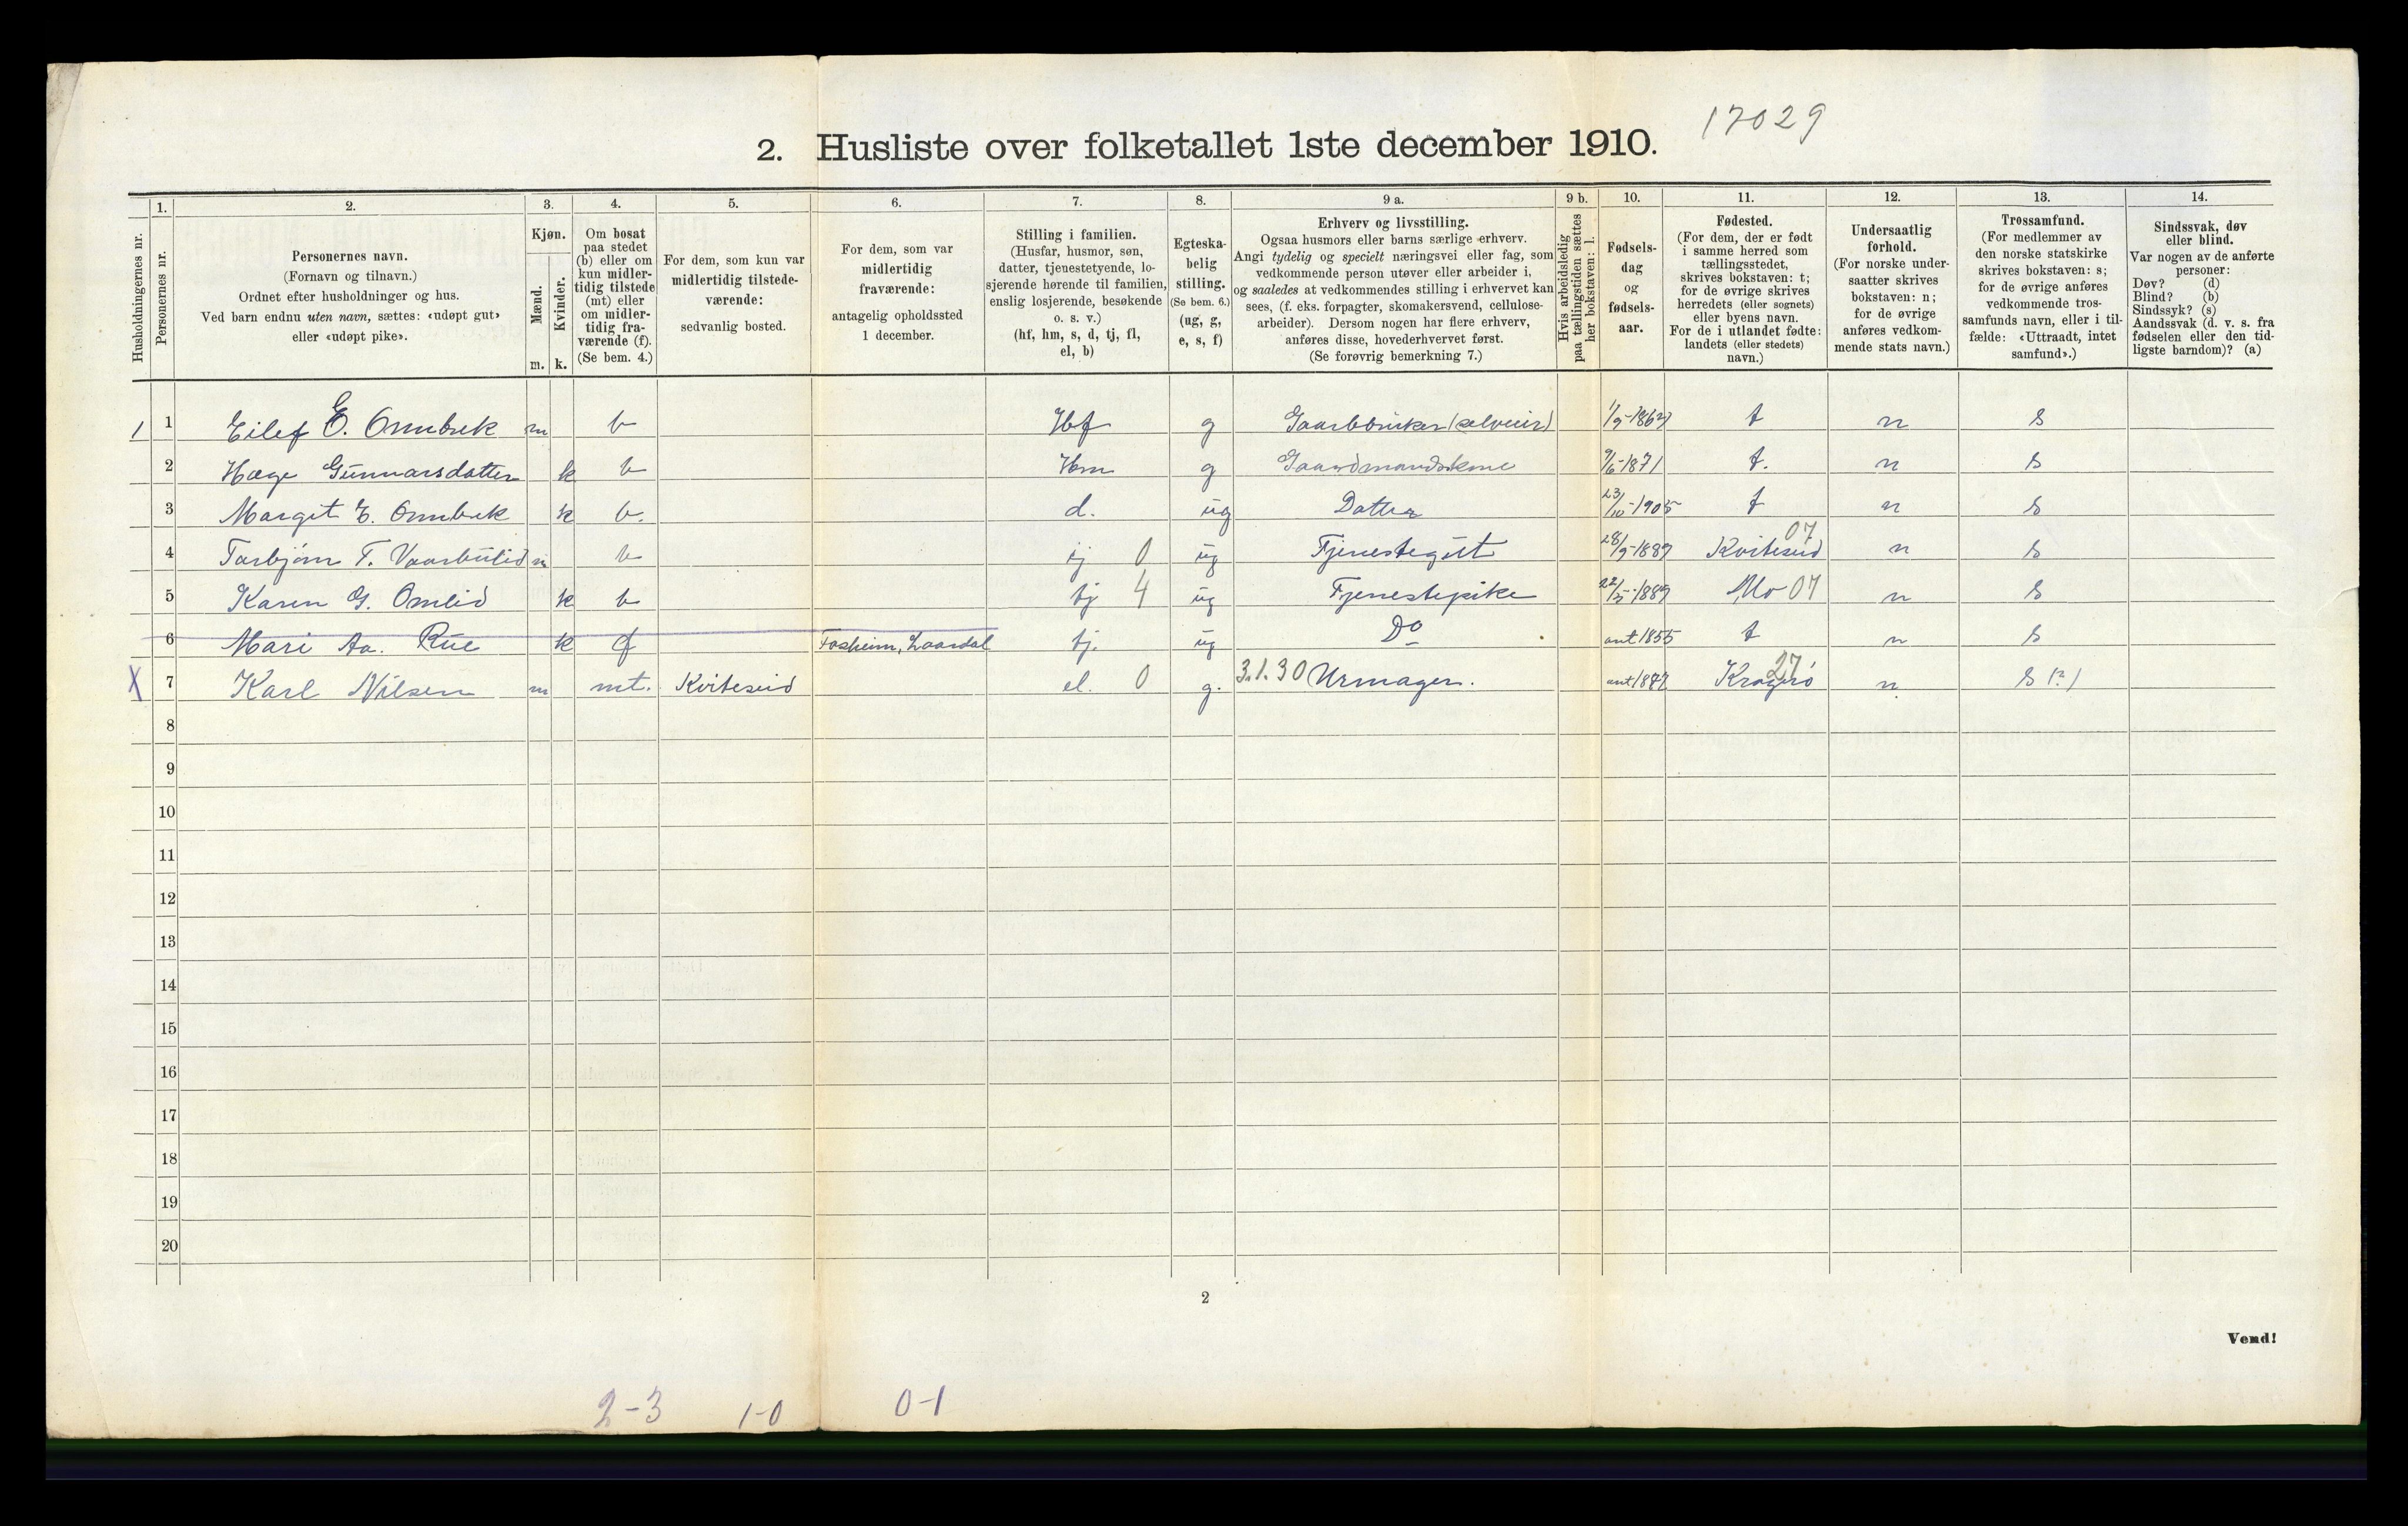 17029
2. Husliste over folketallet 1ste december 1910.
1. 2. 3. 4. 5. 6. 7. 8. 9 a. 9 b. 10. 11. 12. 13. 14.
Husholdningernes nr.
Personernes nr.
Personernes navn.
(Fornavn og tilnavn.)
Ordnet efter husholdninger og hus.
Ved barn endnu uten navn, sættes: «udøpt gut»
eller «udøpt pike».
Kjøn.
Mænd.
Kvinder.
m. k.
Om bosat
paa stedet
(b) eller om
kun midler-
tidig tilstede
(mt) eller
om midler-
tidig fra-
værende (f).
(Se bem. 4.)
For dem, som kun var
midlertidig tilstede-
værende:
sedvanlig bosted.
For dem, som var
midlertidig
fraværende:
antagelig opholdssted
1 december.
Stilling i familien.
(Husfar, husmor, søn,
datter, tjenestetyende, lo-
sjerende hørende til familien,
enslig losjerende, besøkende
o. s. v.)
(hf, hm, s, d, tj, fl,
el, b)
Egteska-
belig
stilling.
(Se bem. 6.)
(ug, g,
e, s, f)
Erhverv og livsstilling.
Ogsaa husmors eller barns særlige erhverv.
Angi tydelig og specielt næringsvei eller fag, som
vedkommende person utøver eller arbeider i,
og saaledes at vedkommendes stilling i erhvervet kan
sees, (f. eks. forpagter, skomakersvend, cellulose-
arbeider). Dersom nogen har flere erhverv,
anføres disse, hovederhvervet først.
(Se forøvrig bemerkning 7.)
Hvis arbeidsledig
paa tællingstiden sættes
her bokstaven: l.
Fødsels-
dag
og
fødsels-
aar.
Fødested.
(For dem, der er født
i samme herred som
tællingsstedet,
skrives bokstaven: t;
for de øvrige skrives
herredets (eller sognets)
eller byens navn.
For de i utlandet fødte:
landets (eller stedets)
navn.)
Undersaatlig
forhold.
(For norske under-
saatter skrives
bokstaven: n;
for de øvrige
anføres vedkom-
mende stats navn.)
Trossamfund.
(For medlemmer av
den norske statskirke
skrives bokstaven: s;
for de øvrige anføres
vedkommende tros-
samfunds navn, eller i til-
fælde: «Uttraadt, intet
samfund».)
Sindssvak, døv
eller blind.
Var nogen av de anførte
personer:
Døv? (d)
Blind? (b)
Sindssyk? (s)
Aandssvak (d. v. s. fra
fødselen eller den tid-
ligste barndom)? (a)
1 1 Eilef E. Omnbrek m b Hf g t n s
2 Hæge Gunnarsdatter k b Hm g Gaardmandskone 9/6-1871 t. n s
3 Margit E. Omnbrek k b. d. ug Datter 23/10-1905 t n s
4 m b tj 0 ug Fjenestegut 28/9-1889 Kviteseid 07 n s
5 Karen G. Omlid k b tj 4 ug Fjenestepike 22/5-1889 Mo 07 n s
6 Mari Aa. Rue k f Fosheim, Laardal tj. ug Do ant 1855 t n s
X 7 Karl Nilsen m mt. Kviteseid el. 0 g. 3.1.30 Urmager. Kragerö 27 n s (?)
8
9
10
11
12
13
14
15
16
17
18
19
20
2
Vend!
2-3 1-0 0-1